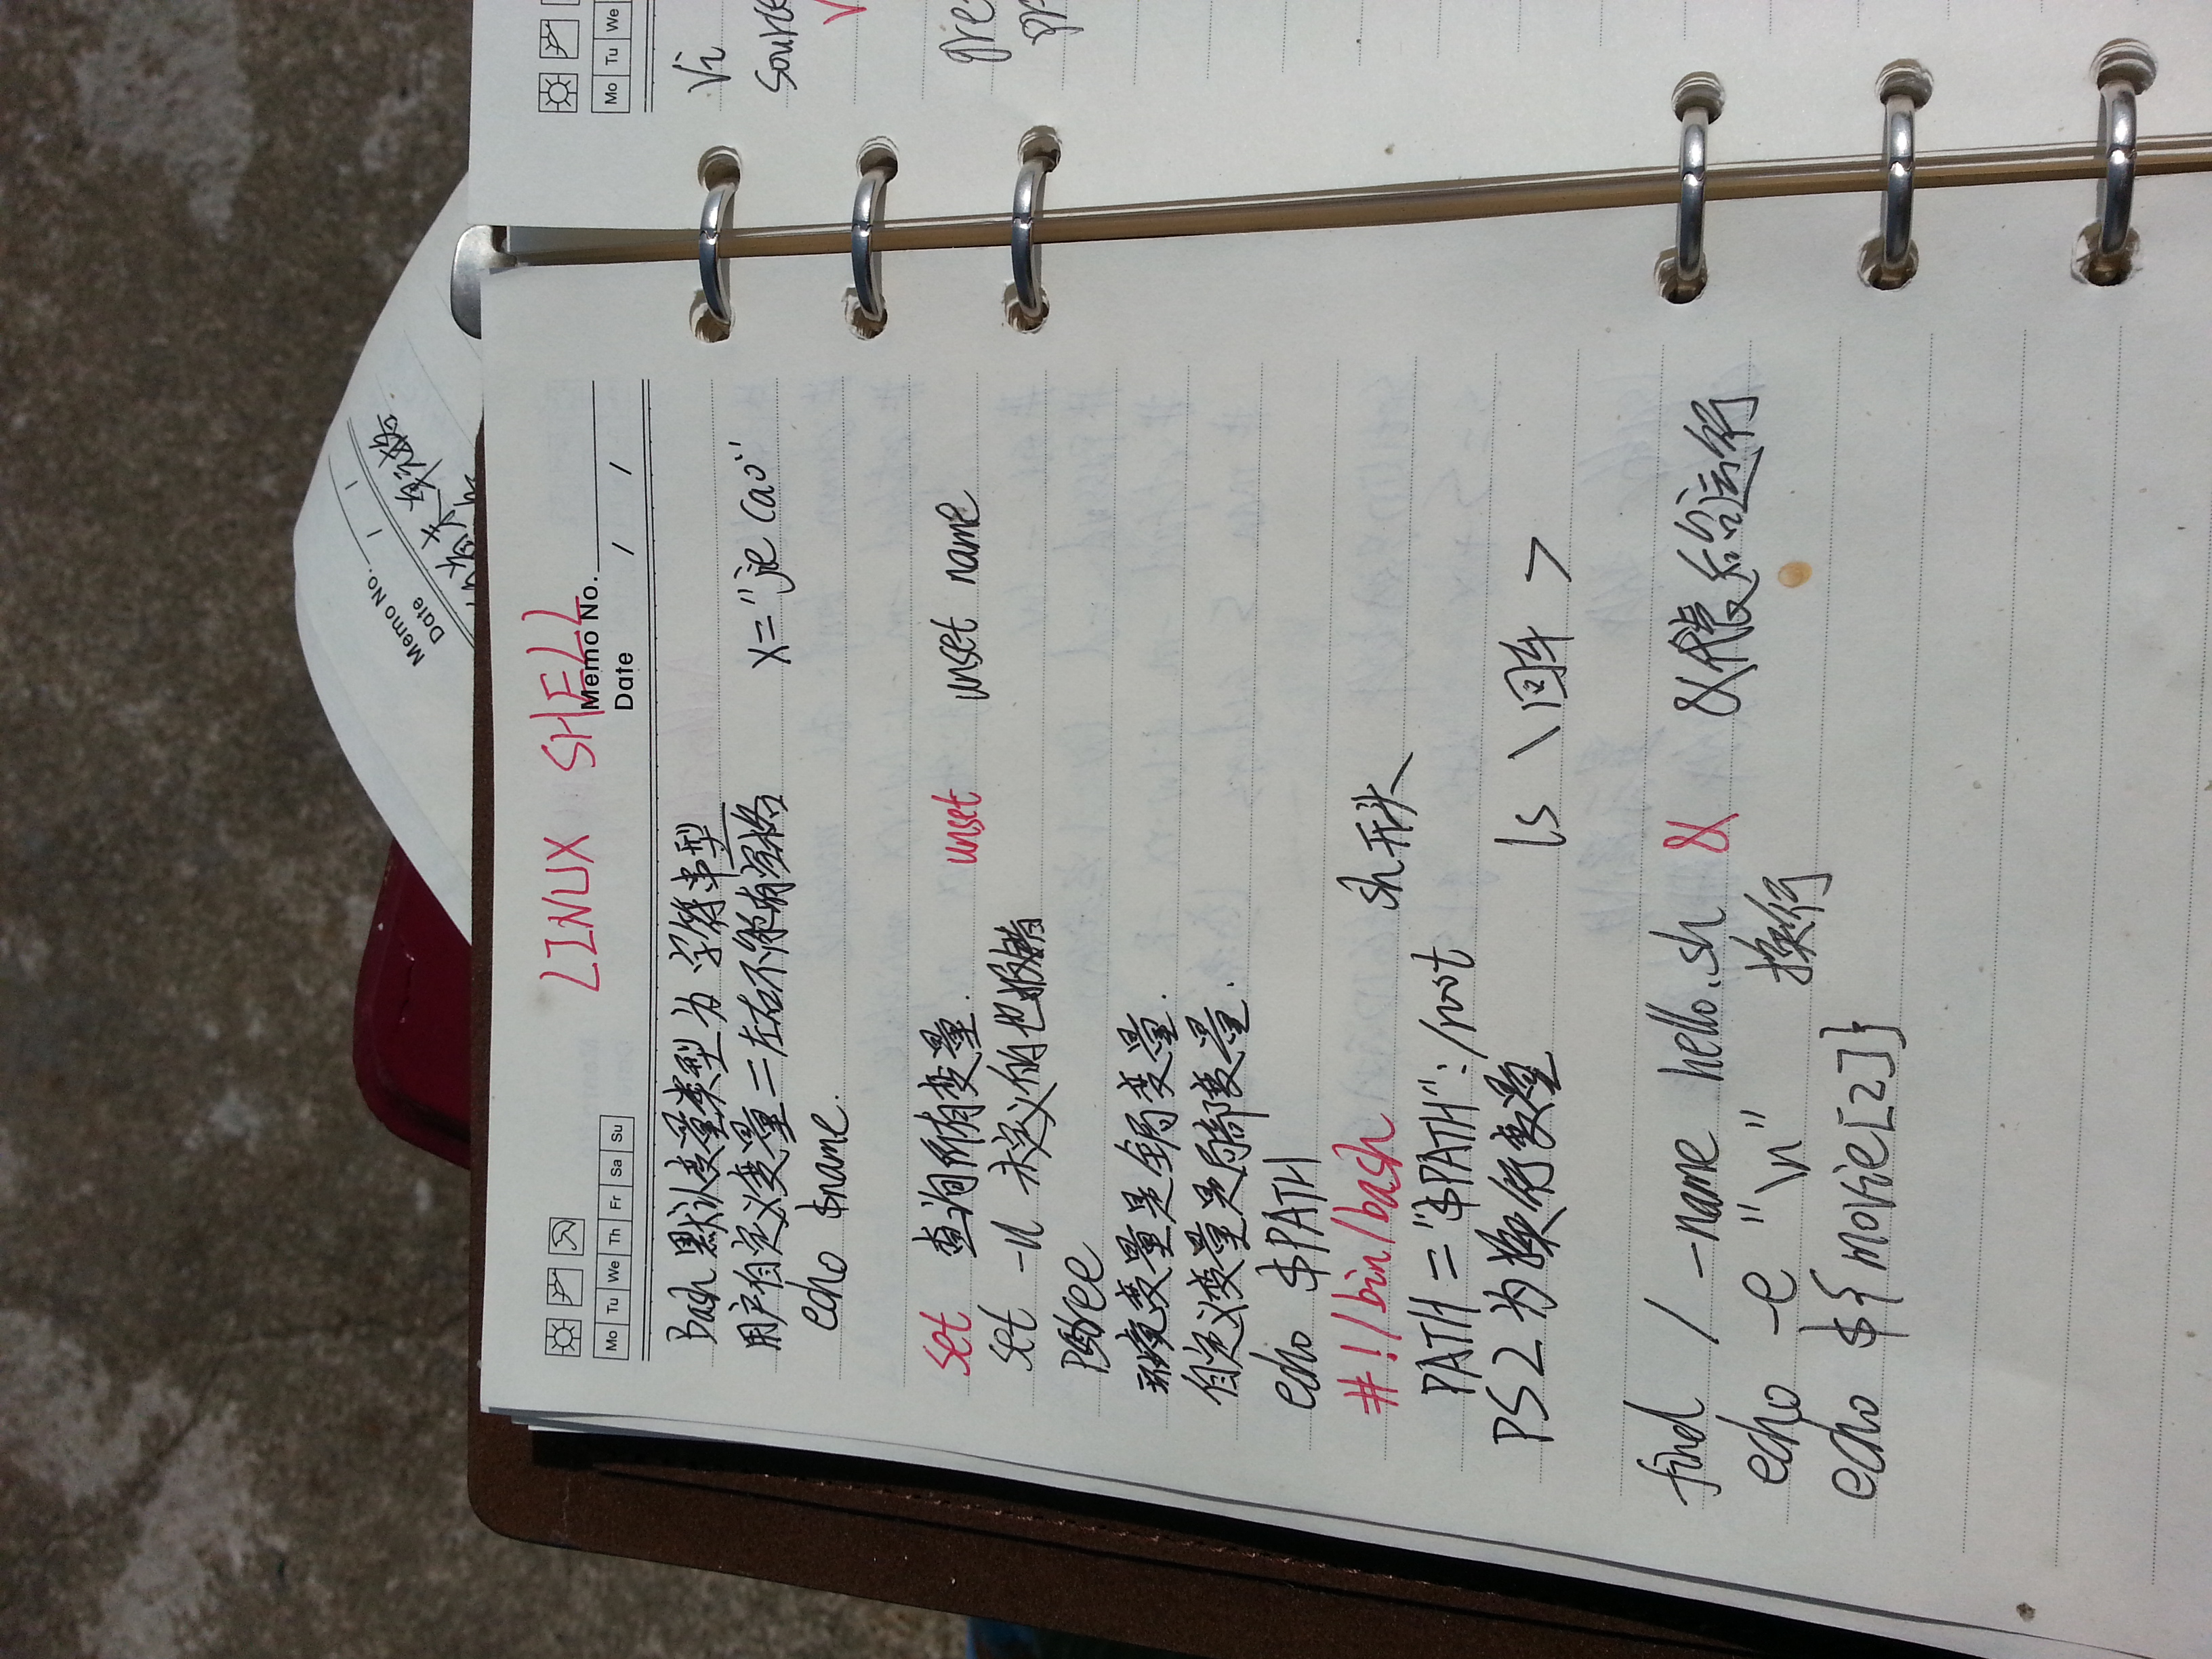 Memo No.
Date / /
首末单元格
LINUX SHELL
Memo No.
Mo Tu We Th Fr Sa Su
Date / /
Bash 默认变量类型为 字符串型
用户自定义变量 = 左右不能有空格 x="jie cao"
echo $name.
set 查询所有变量. unset unset name
set -u 未定义的也报错
pstree
环境变量是全局变量.
自定义变量是局部变量.
echo $PATH
#!/bin/bash sh开头
PATH="$PATH":/root
PS2为换行变量 ls \回车 >
find / -name hello.sh & &代表后台运行
echo -e "\n" 换行
echo ${movie[2]}
Mo Tu We
Vi
source